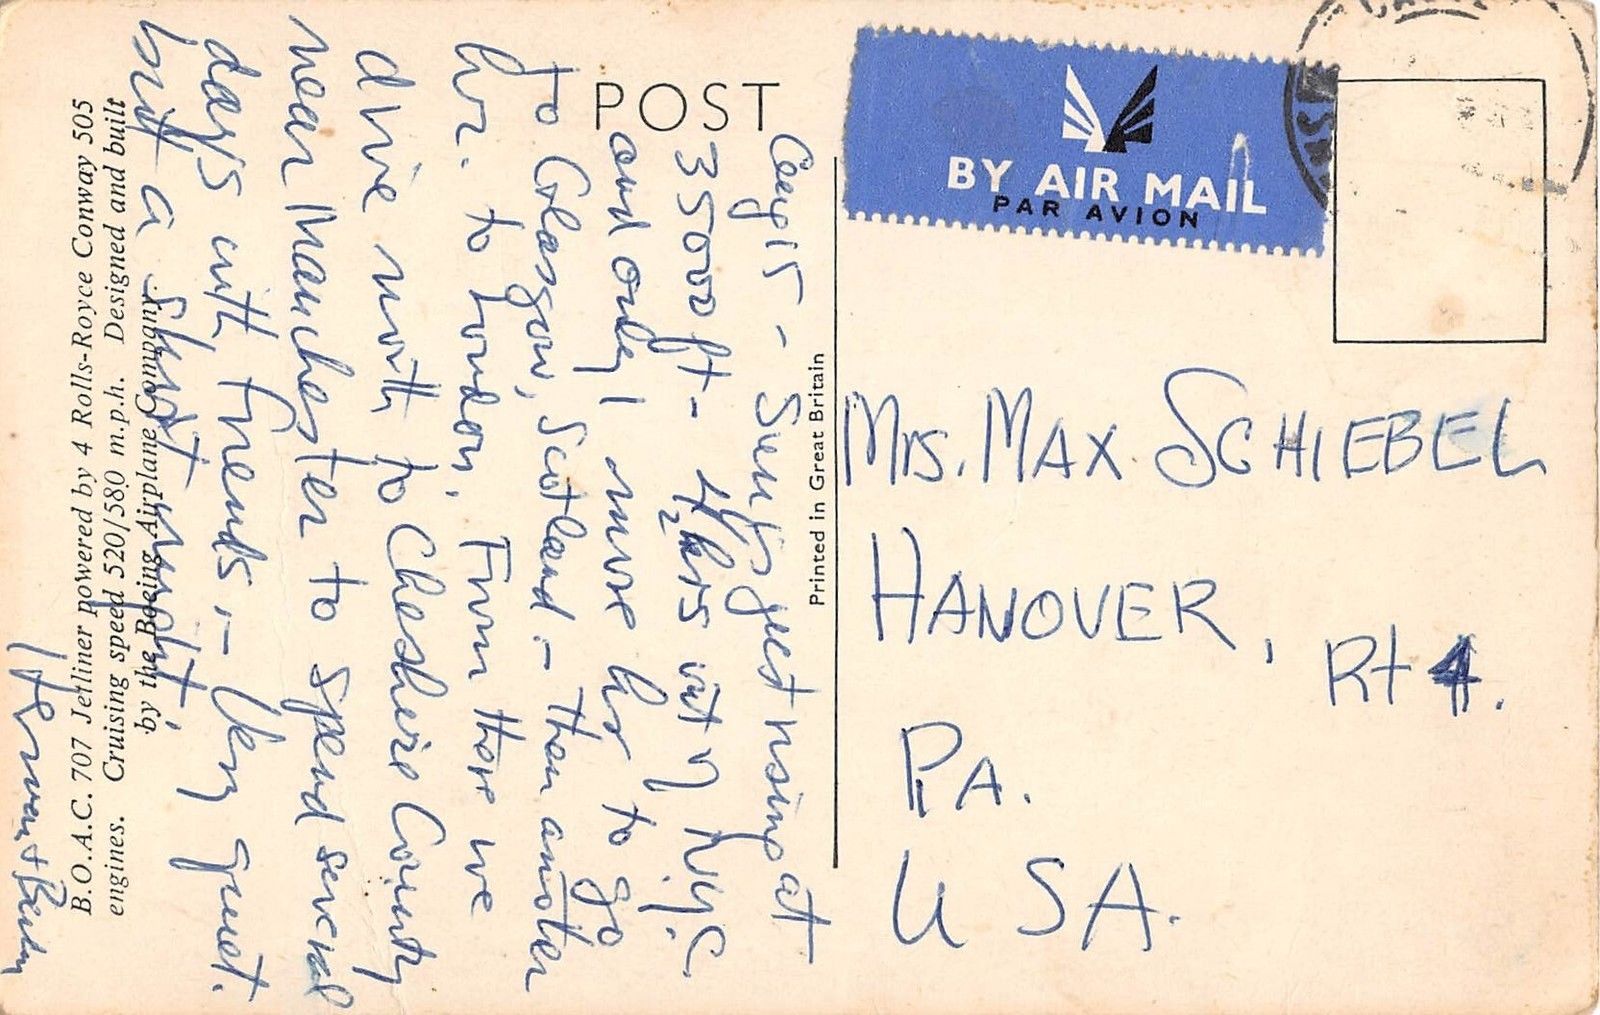 POST
BY AIR MAIL
PAR AVION
Aug 15 - Sun is just rising at
35000 ft - 4 1/2 hrs out of N.Y.C.
and only 1 more hr to go
to Glasgow, Scotland - Then another
hr. to London. From there we
drive north to Cheshire County
near Manchester to spend several
days with friends. - Very quiet.
but a short night.
Herman +
B.O.A.C. 707 Jetliner powered by 4 Rolls-Royce Conway 505
engines. Cruising speed 520/580 m.p.h. Designed and built
by the Boeing Airplane Company.
Printed in Great Britain
MRS. MAX SCHIEBEL
HANOVER, Rt 4.
PA.
USA.